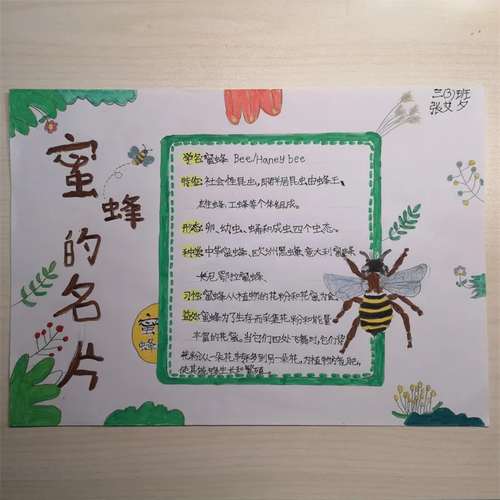 三(3)班
张艾夕
蜜蜂的名片
学名:蜜蜂 Bee/Haney bee
特征:社会性昆虫,即群居昆虫由蜂王、
雄蜂、工蜂等个体组成。
形态:卵、幼虫、蛹和成虫四个虫态。
种类:中华蜜蜂、欧洲黑蜂、意大利蜜蜂、
卡尼鄂拉蜜蜂、
习性:蜜蜂从植物的花粉和花蜜为食。
益处:蜜蜂为了生存而采集花粉和能量
丰富的花蜜。当它们四处飞舞时,它们将
花粉从一朵花转移到另一朵花。为植物
使其能够生长和繁殖。
蜜蜂